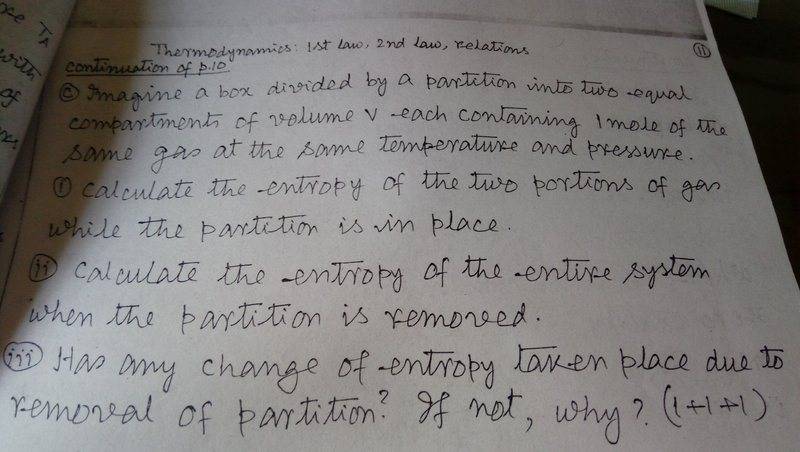 Thermodynamics: 1st Law, 2nd Law, relations
(11)
continuation of p.10
(c) Imagine a box divided by a partition into two equal
compartments of volume V each containing 1 mole of the
same gas at the same temperature and pressure.
(i) Calculate the entropy of the two portions of gas
while the partition is in place.
(ii) Calculate the entropy of the entire system
when the partition is removed.
(iii) Has any change of entropy taken place due to
removal of partition? If not, why? (1+1+1)
TA
with
of